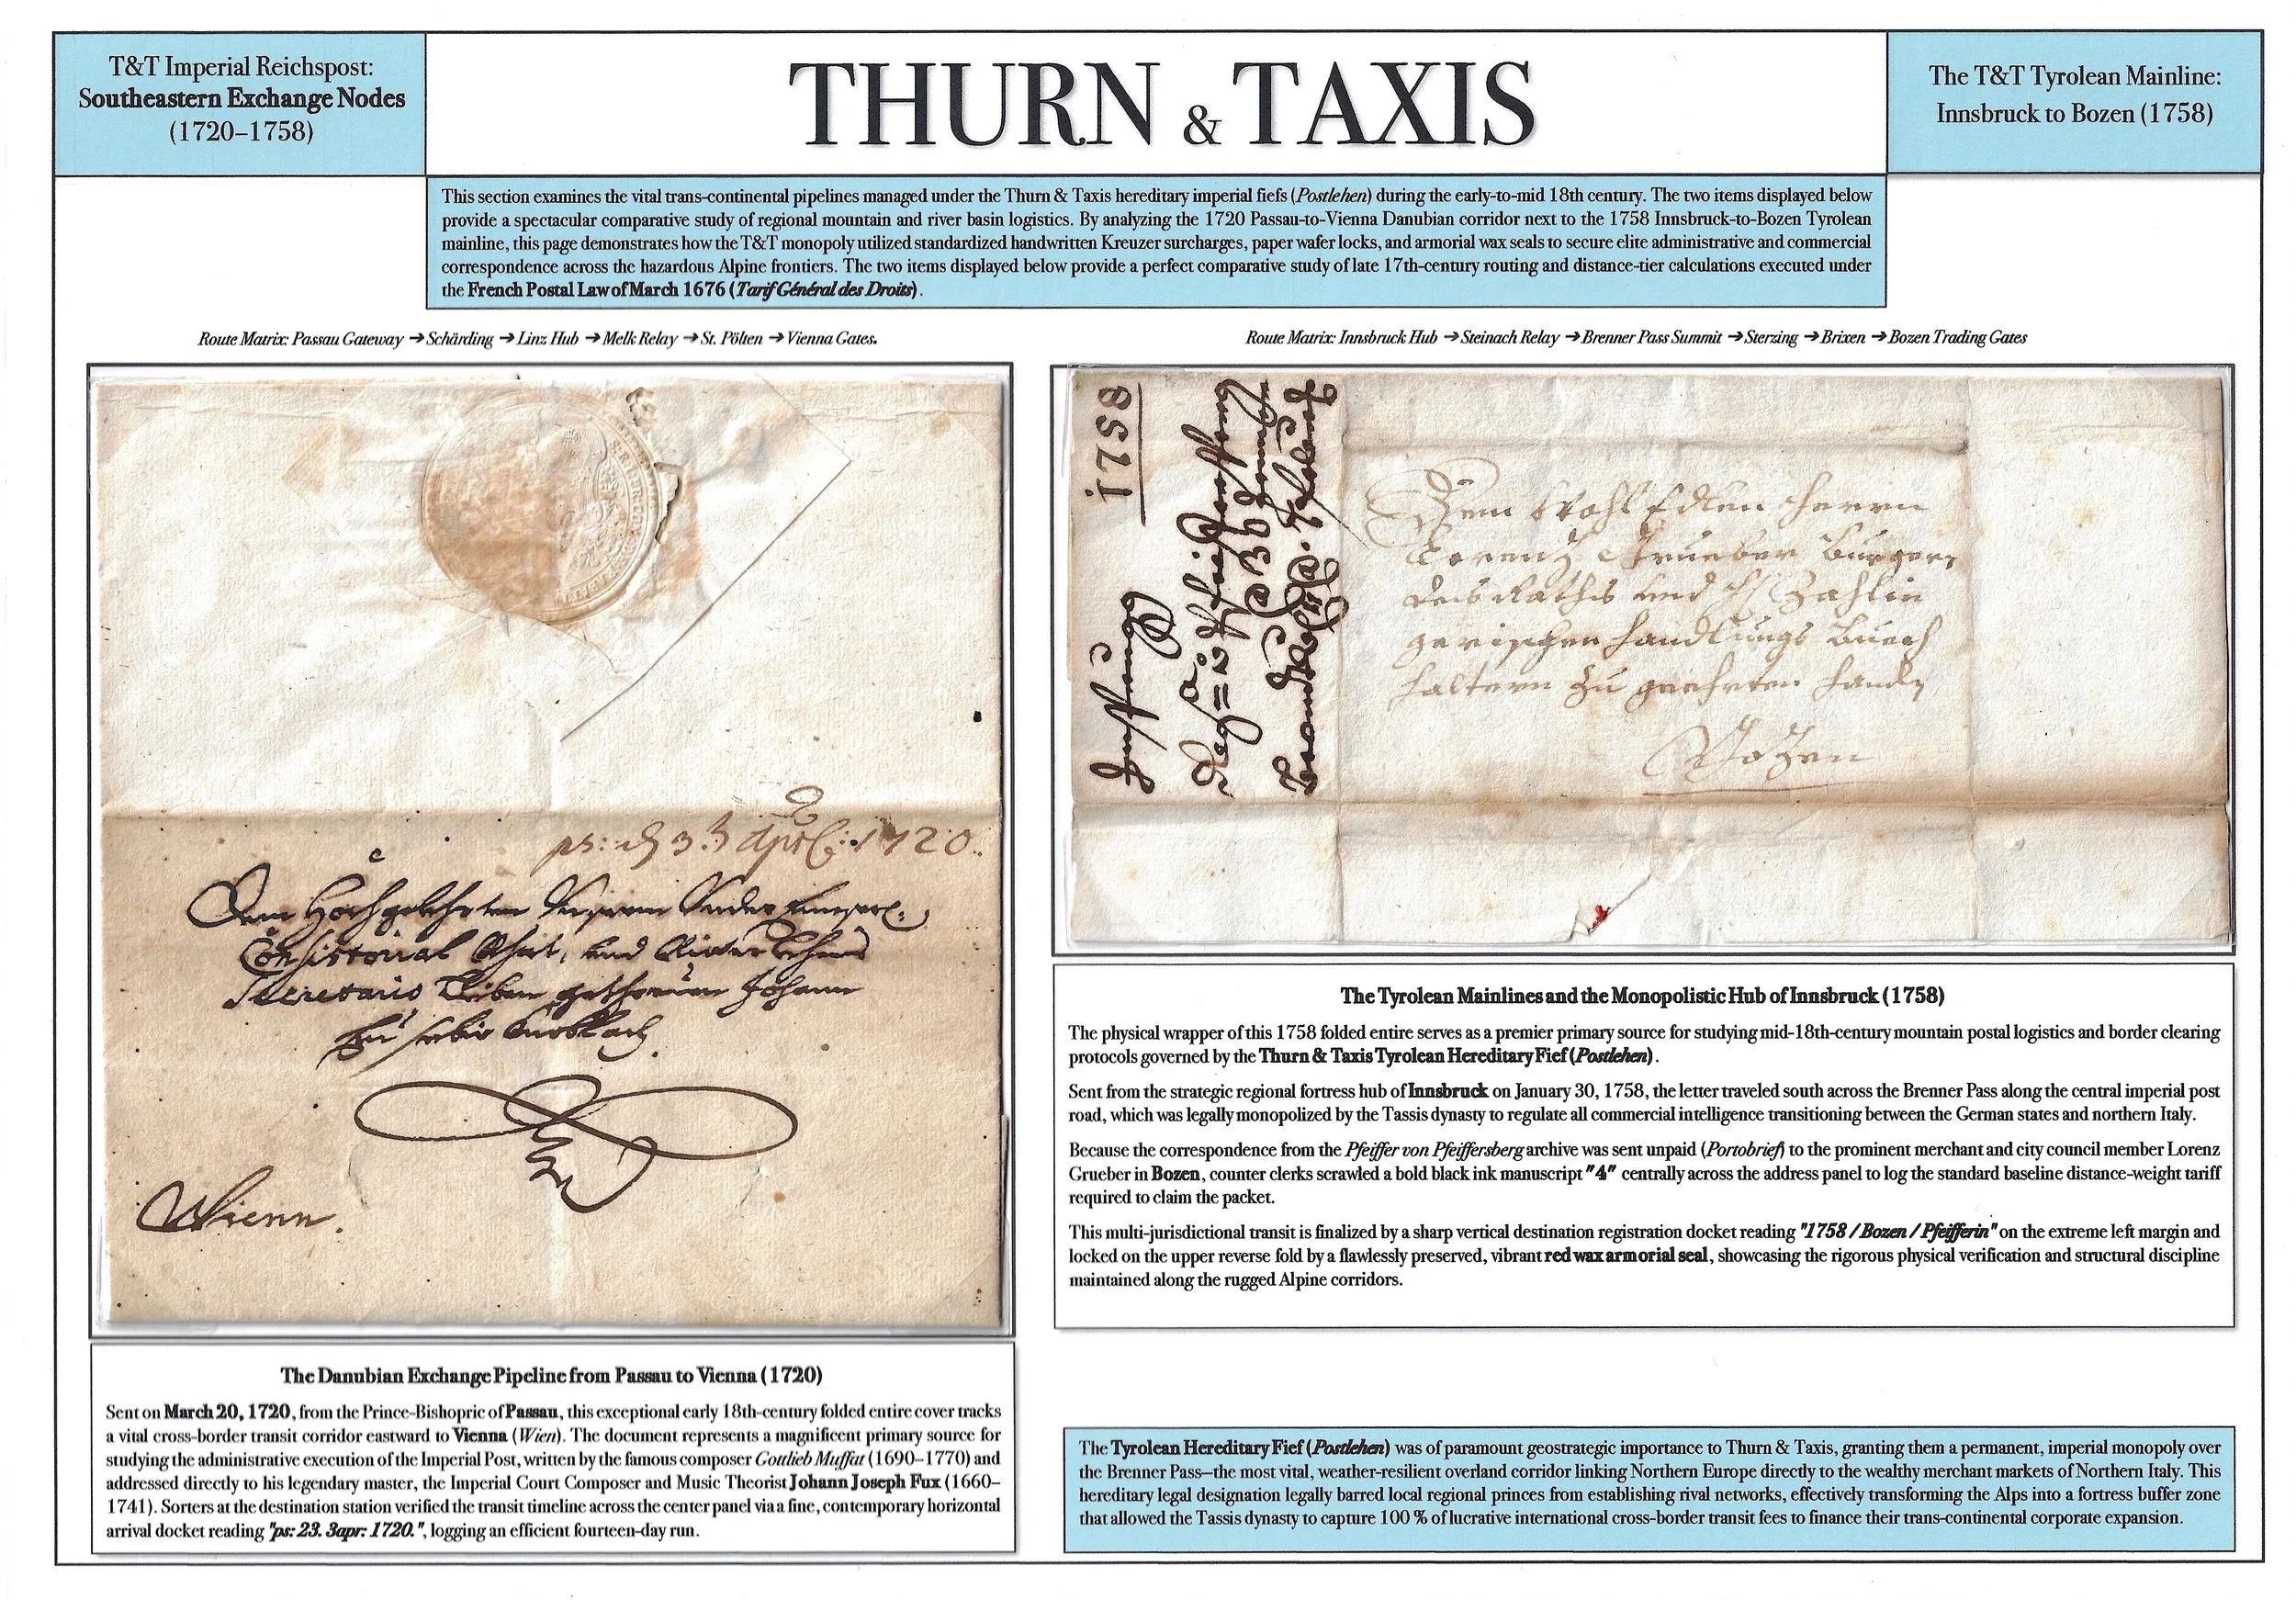 T&T Imperial Reichspost:
Southeastern Exchange Nodes
(1720–1758)
THURN & TAXIS
The T&T Tyrolean Mainline:
Innsbruck to Bozen (1758)
This section examines the vital trans-continental pipelines managed under the Thurn & Taxis hereditary imperial fiefs (Postlehen) during the early-to-mid 18th century. The two items displayed below
provide a spectacular comparative study of regional mountain and river basin logistics. By analyzing the 1720 Passau-to-Vienna Danubian corridor next to the 1758 Innsbruck-to-Bozen Tyrolean
mainline, this page demonstrates how the T&T monopoly utilized standardized handwritten Kreuzer surcharges, paper wafer locks, and armorial wax seals to secure elite administrative and commercial
correspondence across the hazardous Alpine frontiers. The two items displayed below provide a perfect comparative study of late 17th-century routing and distance-tier calculations executed under
the French Postal Law of March 1676 (Tarif Général des Droits).
Route Matrix: Passau Gateway → Schärding → Linz Hub → Melk Relay → St. Pölten → Vienna Gates.
Route Matrix: Innsbruck Hub → Steinach Relay → Brenner Pass Summit → Sterzing → Brixen → Bozen Trading Gates
ps: 3. April: 1720.
Dem Hochgelehrten Unserm
Consistorial Rhat, und
Secretario Lieben getreuen Johann
Wienn.
1758
Dem Wohl Edlen Herrn
Lorenz Grueber Burger,
des Raths und
Handlungs Buech
haltern zu geehrten Handen
Bozen
The Danubian Exchange Pipeline from Passau to Vienna (1720)
Sent on March 20, 1720, from the Prince-Bishopric of Passau, this exceptional early 18th-century folded entire cover tracks
a vital cross-border transit corridor eastward to Vienna (Wien). The document represents a magnificent primary source for
studying the administrative execution of the Imperial Post, written by the famous composer Gottlieb Muffat (1690–1770) and
addressed directly to his legendary master, the Imperial Court Composer and Music Theorist Johann Joseph Fux (1660–
1741). Sorters at the destination station verified the transit timeline across the center panel via a fine, contemporary horizontal
arrival docket reading "ps: 23. 3apr: 1720.", logging an efficient fourteen-day run.
The Tyrolean Mainlines and the Monopolistic Hub of Innsbruck (1758)
The physical wrapper of this 1758 folded entire serves as a premier primary source for studying mid-18th-century mountain postal logistics and border clearing
protocols governed by the Thurn & Taxis Tyrolean Hereditary Fief (Postlehen).
Sent from the strategic regional fortress hub of Innsbruck on January 30, 1758, the letter traveled south across the Brenner Pass along the central imperial post
road, which was legally monopolized by the Tassis dynasty to regulate all commercial intelligence transitioning between the German states and northern Italy.
Because the correspondence from the Pfeiffer von Pfeiffersberg archive was sent unpaid (Portobrief) to the prominent merchant and city council member Lorenz
Grueber in Bozen, counter clerks scrawled a bold black ink manuscript "4" centrally across the address panel to log the standard baseline distance-weight tariff
required to claim the packet.
This multi-jurisdictional transit is finalized by a sharp vertical destination registration docket reading "1758 / Bozen / Pfeifferin" on the extreme left margin and
locked on the upper reverse fold by a flawlessly preserved, vibrant red wax armorial seal, showcasing the rigorous physical verification and structural discipline
maintained along the rugged Alpine corridors.
The Tyrolean Hereditary Fief (Postlehen) was of paramount geostrategic importance to Thurn & Taxis, granting them a permanent, imperial monopoly over
the Brenner Pass—the most vital, weather-resilient overland corridor linking Northern Europe directly to the wealthy merchant markets of Northern Italy. This
hereditary legal designation legally barred local regional princes from establishing rival networks, effectively transforming the Alps into a fortress buffer zone
that allowed the Tassis dynasty to capture 100 % of lucrative international cross-border transit fees to finance their trans-continental corporate expansion.